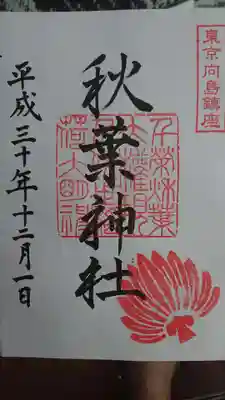 東京向島鎮座
秋葉神社
平成三十年十二月一日